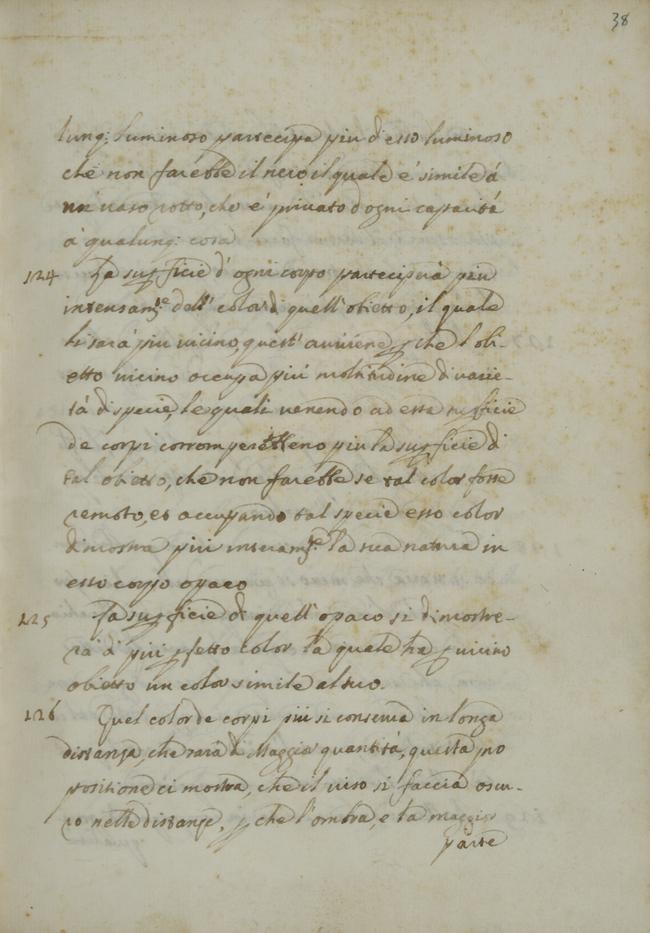 38
lung: luminoso partecipa piu d'esso luminoso
che non farebbe il nero il quale é simile á
un' vaso rotto, che é privato d'ogni capacitá
a' qualung: cosa
124 La suṗficie d' ogni corpo partecipa piu
intensam.te dell' color di quell' obietto, il quale
li sará piu vicino, quest' avviene ꝑ che l'obi-
etto vicino occupa piú moltitudine di varie-
tá di specie, le quali venendo ad essa suꝑficie
de corpi corromperebbeno piu la suꝑficie di
tal obietto, che non farebbe se tal color fosse
remoto, et occupando tal specie esso color
dimostra piú interam.te la sua natura in
esso corpo opaco
125 La suꝑficie di quell' opaco si dimostre-
rá di piú ꝑfetto color la quale há ꝑ vicino
obietto un color simile al suo.
126 Quel color de corpi piú si conserva in longa
distanza, che sará di Maggior quantitá, questa pro
positione ci mostra, che il viso si faccia oscu-
ro nelle distanze, ꝑ che l'ombra, e la maggior
parte